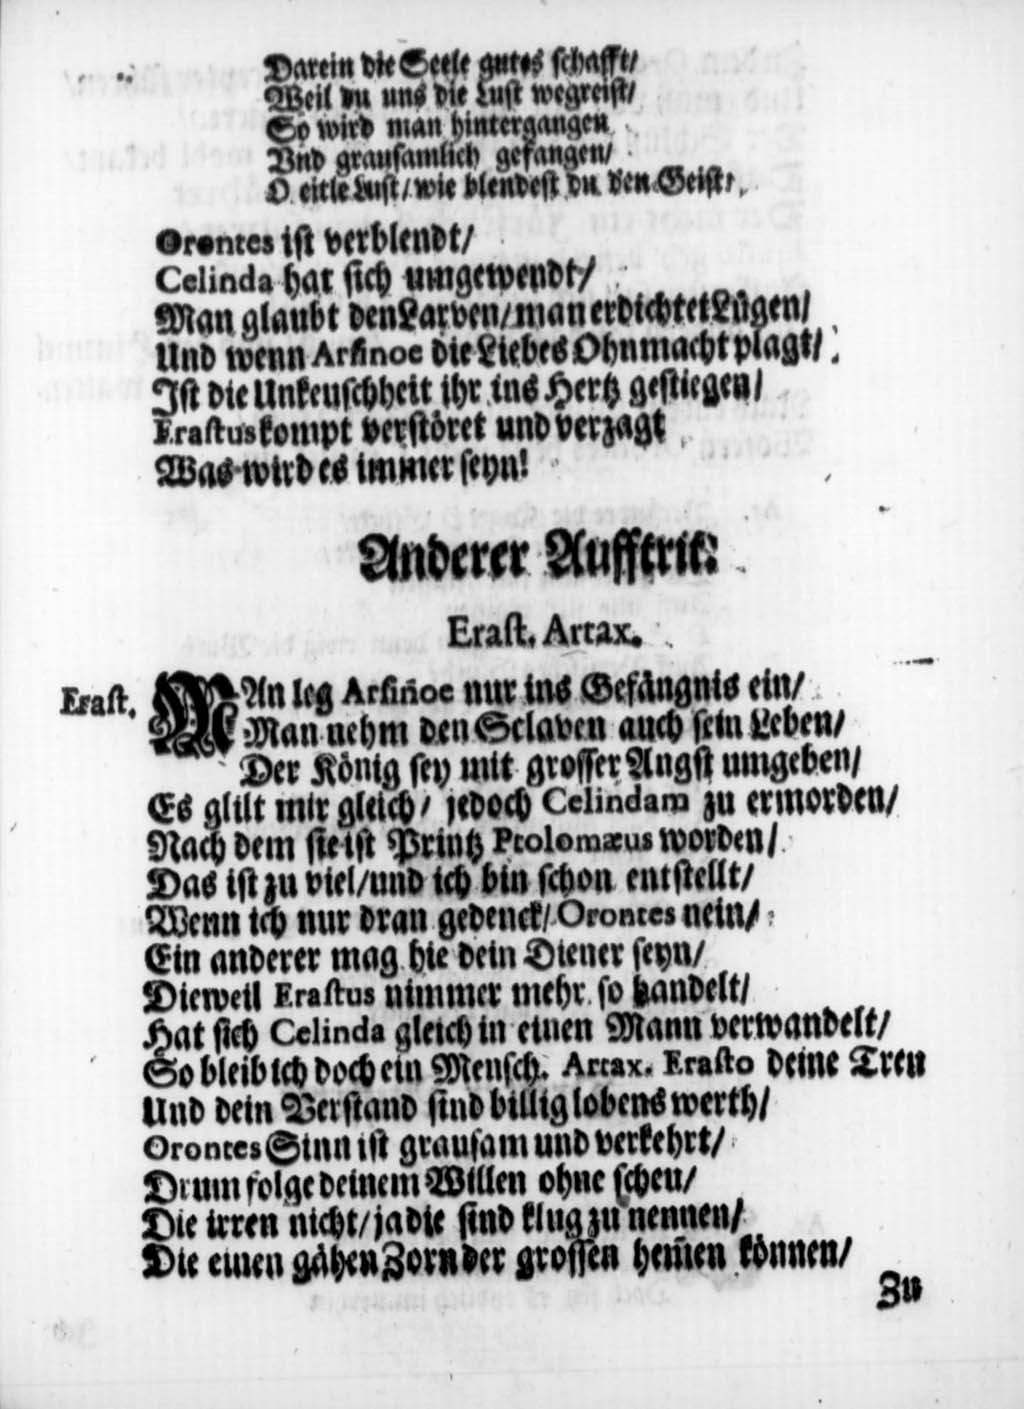 Darein die Seele gutes schafft/
Weil du uns die Lust wegreist/
So wird man hintergangen
Vnd grausamlich gefangen/
O eitle Lust/ wie blendest du den Geist/
Orontes ist verblendt/
Celinda hat sich umgewendt/
Man glaubt den Larven/ man erdichtet Lügen/
Und wenn Arsinoe die Liebes Ohnmacht plagt/
Ist die Unkeuschheit ihr ins Hertz gestiegen/
Erastus kompt verstöret und verzagt
Was wird es immer seyn!
Anderer Aufftrit.
Erast. Artax.
Erast. MAn leg Arsiñoe nur ins Gefängnis ein/
Man nehm den Sclaven auch sein Leben/
Der König sey mit grosser Angst umgeben/
Es gilt mir gleich/ jedoch Celindam zu ermorden/
Nach dem sie ist Printz Ptolomæus worden/
Das ist zu viel/ und ich bin schon entstellt/
Wenn ich nur dran gedenck/ Orontes nein/
Ein anderer mag hie dein Diener seyn/
Dieweil Erastus nimmer mehr so handelt/
Hat sich Celinda gleich in einen Mann verwandelt/
So bleib ich doch ein Mensch. Artax. Erasto deine Treu
Und dein Verstand sind billig lobens werth/
Orontes Sinn ist grausam und verkehrt/
Drum folge deinem Willen ohne scheu/
Die irren nicht/ ja die sind klug zu nennen/
Die einen gähen Zorn der grossen hem̃en können/
Zu